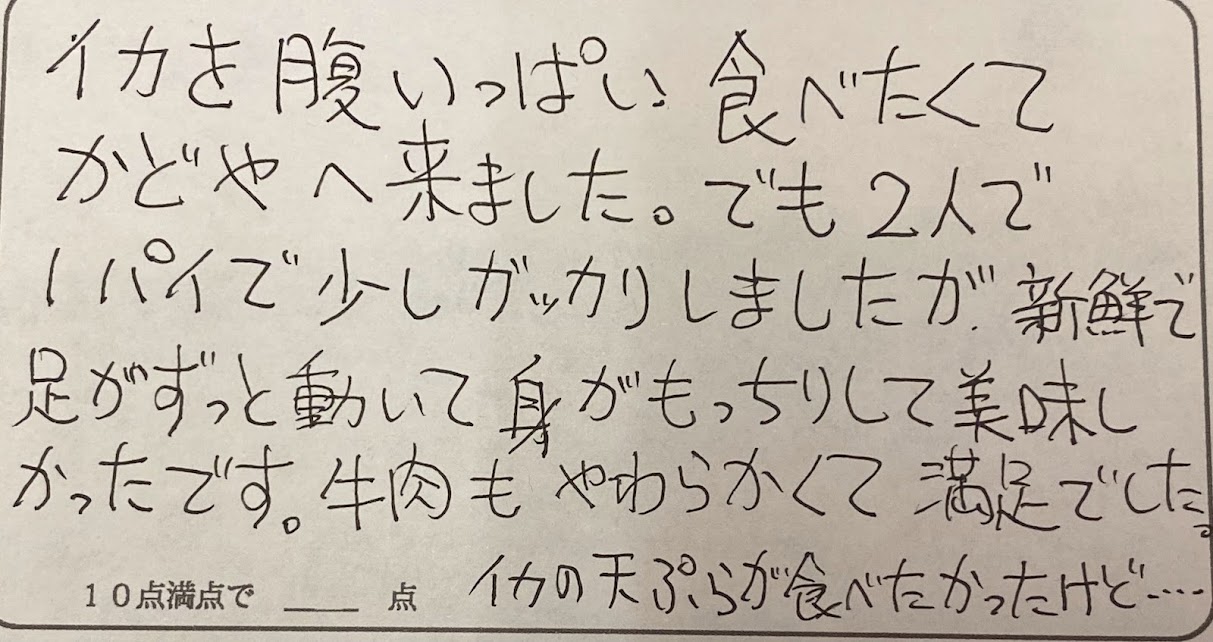 イカを腹いっぱい食べたくて
かどやへ来ました。でも2人で
1パイで少しガッカリしましたが、新鮮で
足がずっと動いて身がもっちりして美味し
かったです。牛肉もやわらかくて満足でした。
イカの天ぷらが食べたかったけど‥‥
10点満点で ___ 点